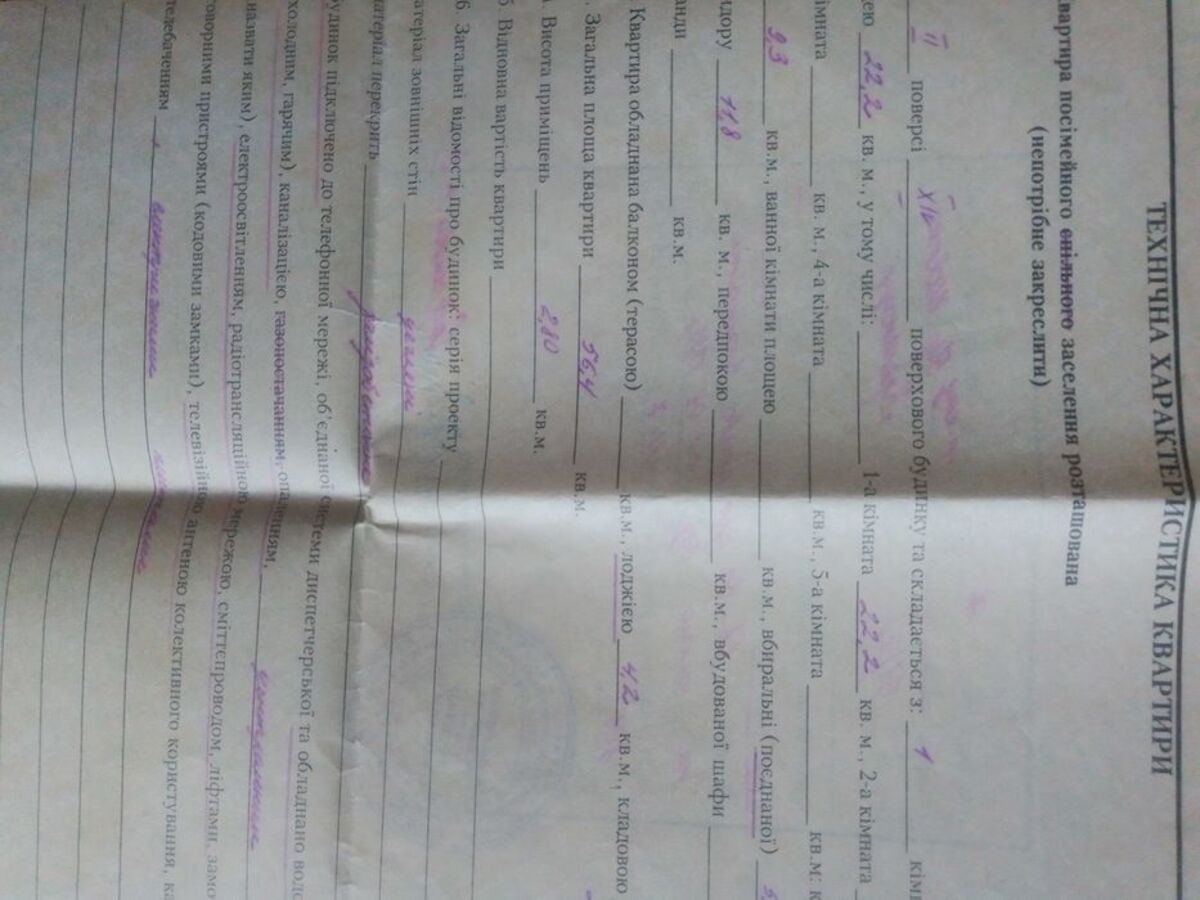 ТЕХНІЧНА ХАРАКТЕРИСТИКА КВАРТИРИ
квартира посімейного спільного заселення розташована
(непотрібне закреслити)
II поверсі XIV поверхового будинку та складається з: 1 кімн
ею 22,2 кв. м., у тому числі: 1-а кімната 22,2 кв. м., 2-а кімната
імната кв. м., 4-а кімната кв.м., 5-а кімната кв.м: к
9,3 кв.м., ванної кімнати площею кв.м., вбиральні (поєднаної) 5,
идору 11,8 кв. м., передпокою кв.м., вбудованої шафи
анди кв.м.
Квартира обладнана балконом (терасою) кв.м., лоджією 4,2 кв.м., кладовою
. Загальна площа квартири 56,4 кв.м.
Висота приміщень 2,80 кв.м.
5 Відновна вартість квартири
6 Загальні відомості про будинок: серія проекту
атеріал зовнішніх стін цегляні
матеріал перекрить залізобетонне
будинок підключено до телефонної мережі, об'єднаної системи диспетчерської та обладнано водо
холодним, гарячим), каналізацією, газопостачанням, опаленням, центральним
назвати яким), електроосвітленням, радіотрансляційною мережою, сміттєпроводом, ліфтами, замо
говорними пристроями (кодовими замками), телевізійною антеною колективного користування, ка
телебаченням,